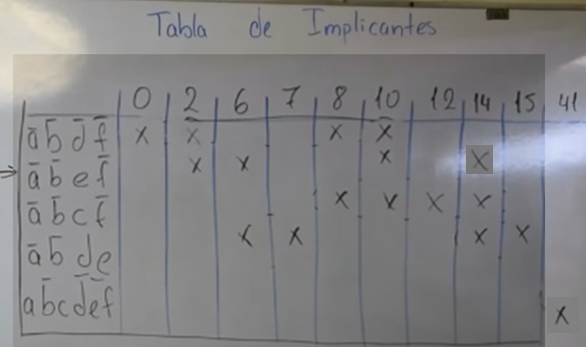 Tabla de Implicantes
0 2 6 7 8 10 12 14 15 41
a̅ b̅ d̅ f̅ x x x x
→ a̅ b̅ e f̅ x x x x
a̅ b̅ c f̅ x x x x
a̅ b̅ d e x x x x
a b̅ c d̅ e̅ f x